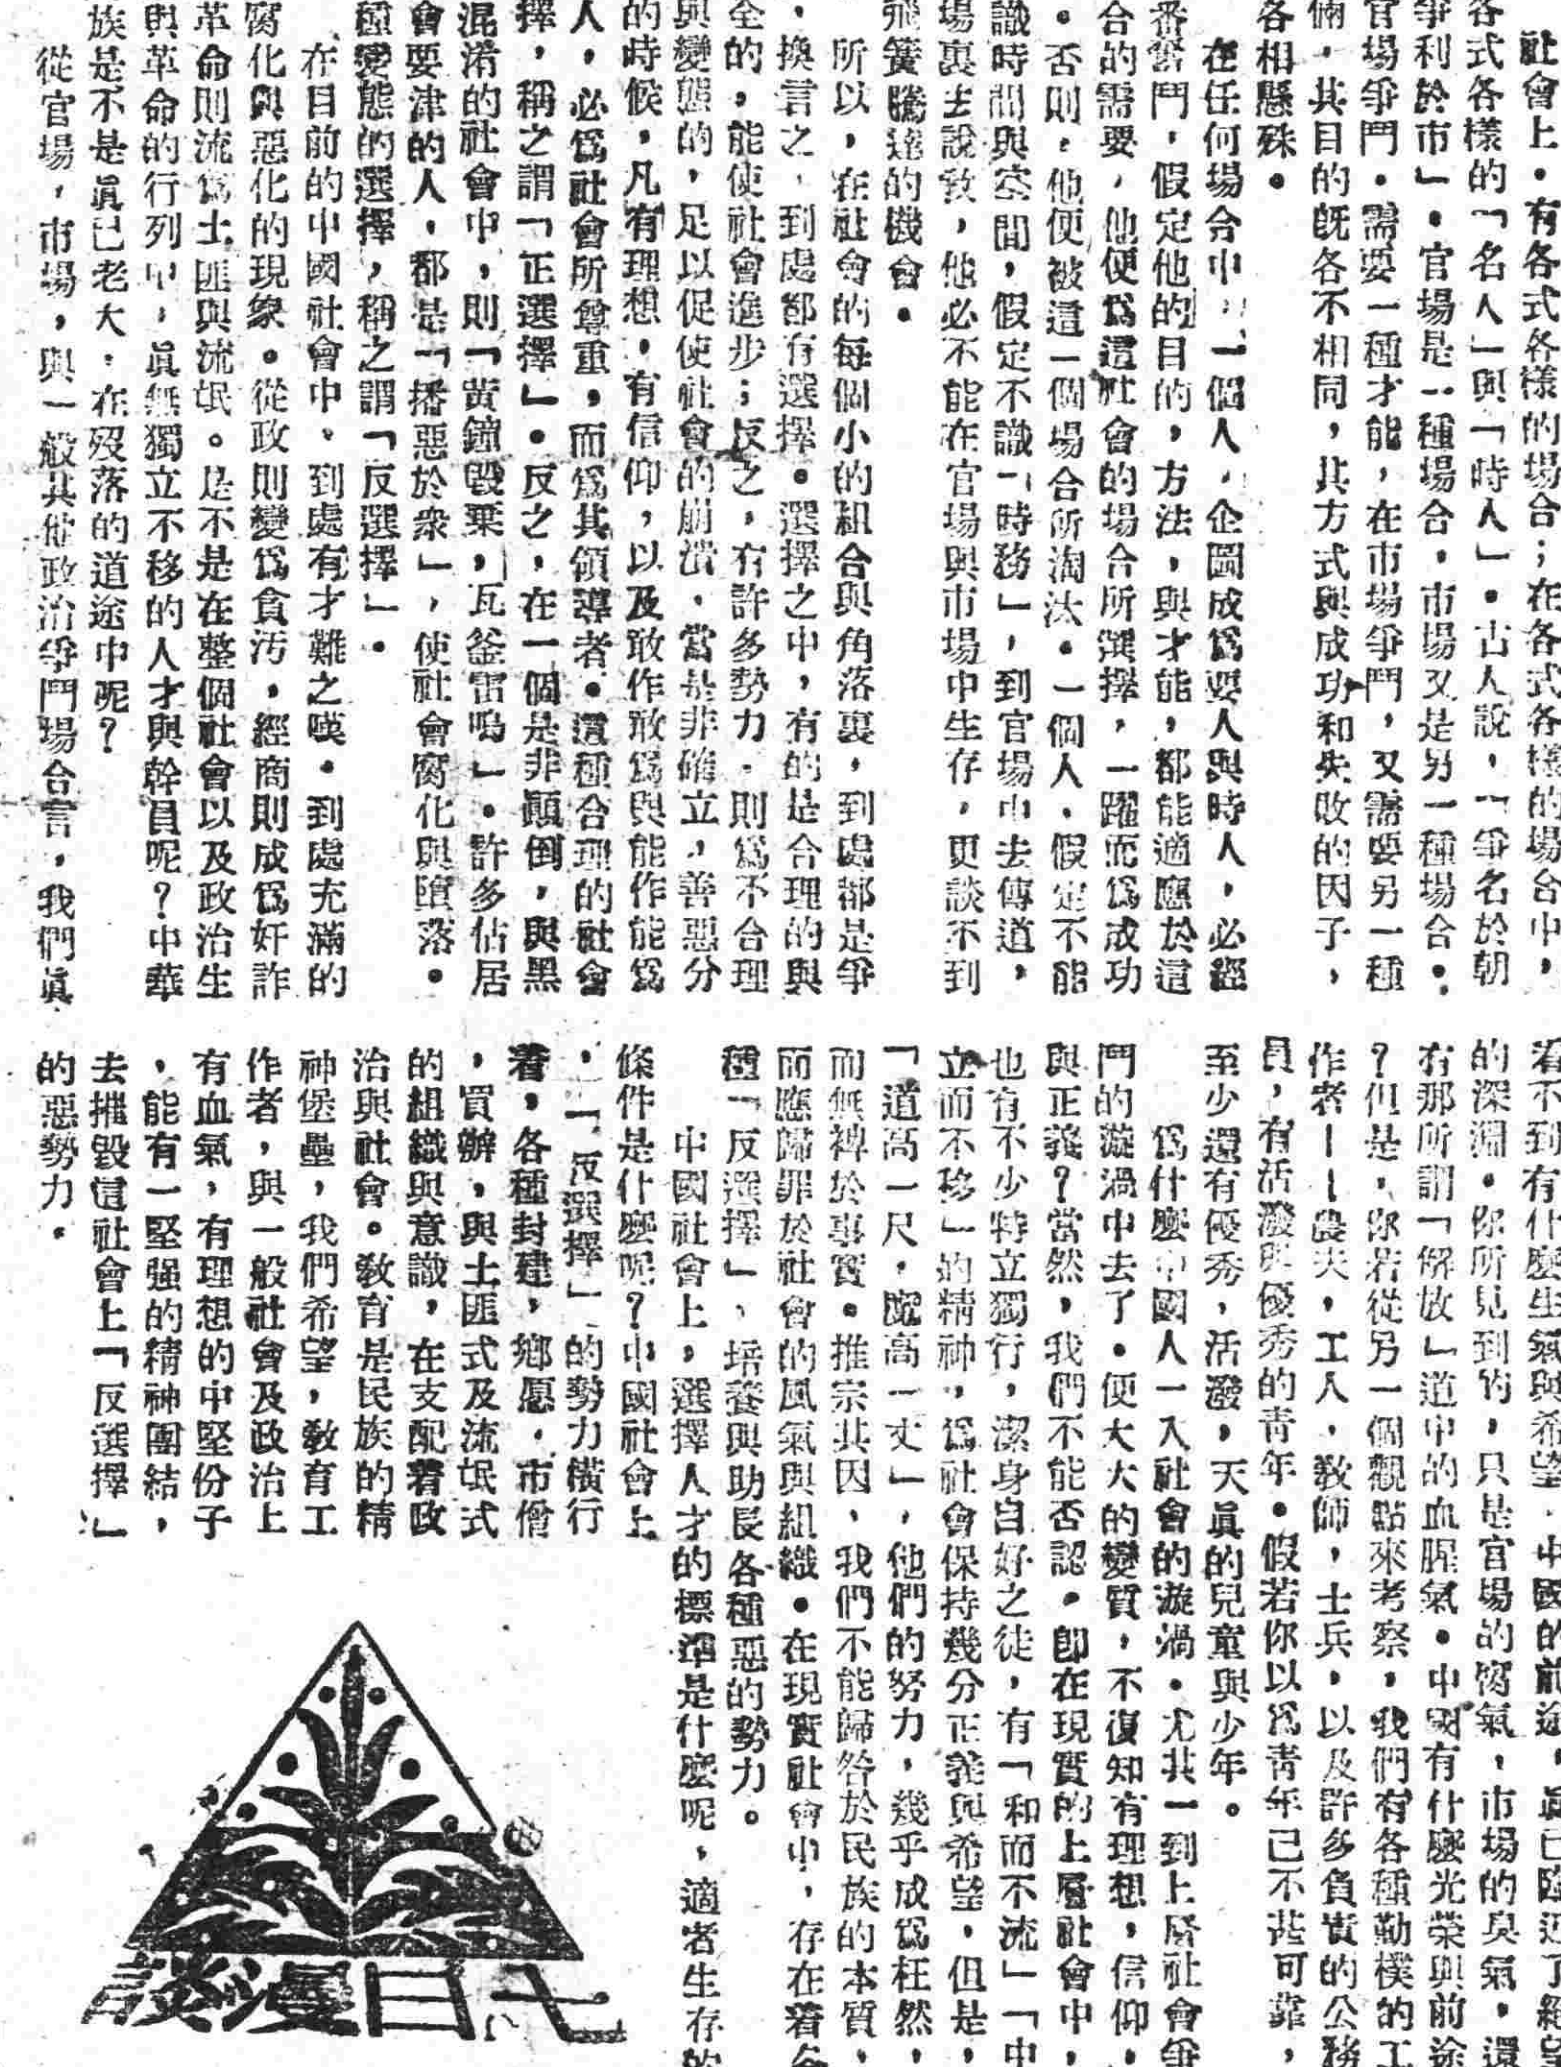 社會上。有各式各樣的場合；在各式各樣的場合中，
各式各樣的「名人」與「時人」。古人說，「爭名於朝
爭利於市」。官場是一種場合，市場又是另一種場合。
官場爭鬥。需要一種才能，在市場爭鬥，又需要另一種
倆，其目的既各不相同，其方式與成功和失敗的因子，
各相懸殊。
在任何場合中，一個人，企圖成爲要人與時人，必經
番奮鬥，假定他的目的，方法，與才能，都能適應於這
合的需要，他便爲這社會的場合所選擇，一躍而爲成功
。否則，他便被這一個場合所淘汰。一個人，假定不能
識時間與空間，假定不識「時務」，到官場中去傳道，
場裏去說教，他必不能在官場與市場中生存，更談不到
飛簧騰達的機會。
所以，在社會的每個小的組合與角落裏，到處都是爭
，換言之，到處都有選擇。選擇之中，有的是合理的與
全的，能使社會進步；反之，有許多勢力，則爲不合理
與變態的，足以促使社會的崩潰，當是非確立，善惡分
的時候，凡有理想，有信仰，以及敢作敢爲與能作能爲
人，必爲社會所尊重，而爲其領導者。這種合理的社會
擇，稱之謂「正選擇」。反之，在一個是非顚倒，與黑
混淆的社會中，則「黃鐘毀棄，瓦釜雷鳴」。許多佔居
會要津的人，都是「播惡於衆」，使社會腐化與墮落。
種變態的選擇，稱之謂「反選擇」。
在目前的中國社會中，到處有才難之嘆。到處充滿的
腐化與惡化的現象。從政則變爲貪汚，經商則成爲奸詐
革命則流爲土匪與流氓。是不是在整個社會以及政治生
與革命的行列中，眞無獨立不移的人才與幹員呢？中華
族是不是眞已老大，在歿落的道途中呢？
從官場，市場，與一般其他政治爭鬥場合言，我們眞
看不到有什麽生氣與希望，中國的前途，眞已臨近了絕望
的深淵。你所見到的，只是官場的腐氣，市場的臭氣，還
有那所謂「解放」道中的血腥氣。中國有什麽光榮與前途
？但是，你若從另一個觀點來考察，我們有各種勤樸的工
作者——農夫，工人，敎師，士兵，以及許多負責的公務
員，有活潑與優秀的靑年。假若你以爲靑年已不甚可靠，
至少還有優秀，活潑，天眞的兒童與少年。
爲什麽中國人一入社會的漩渦。尤其一到上層社會爭
鬥的漩渦中去了。便大大的變質，不復知有理想，信仰，
與正義？當然，我們不能否認。卽在現實的上層社會中，
也有不少特立獨行，潔身自好之徒，有「和而不流」「中
立而不移」的精神，爲社會保持幾分正義與希望，但是，
「道高一尺，魔高一丈」，他們的努力，幾乎成爲枉然，
而無裨於事實。推宗其因，我們不能歸咎於民族的本質，
而應歸罪於社會的風氣與組織。在現實社會中，存在着各
種「反選擇」，培養與助長各種惡的勢力。
中國社會上，選擇人才的標準是什麽呢，適者生存的
條件是什麽呢？中國社會上
，「反選擇」的勢力橫行
着，各種封建，鄉愿，市儈
，買辦，與土匪式及流氓式
的組織與意識，在支配着政
治與社會。敎育是民族的精
神堡壘，我們希望，敎育工
作者，與一般社會及政治上
有血氣，有理想的中堅份子
，能有一堅强的精神團結，
去摧毀這社會上「反選擇」
的惡勢力。
七日漫談